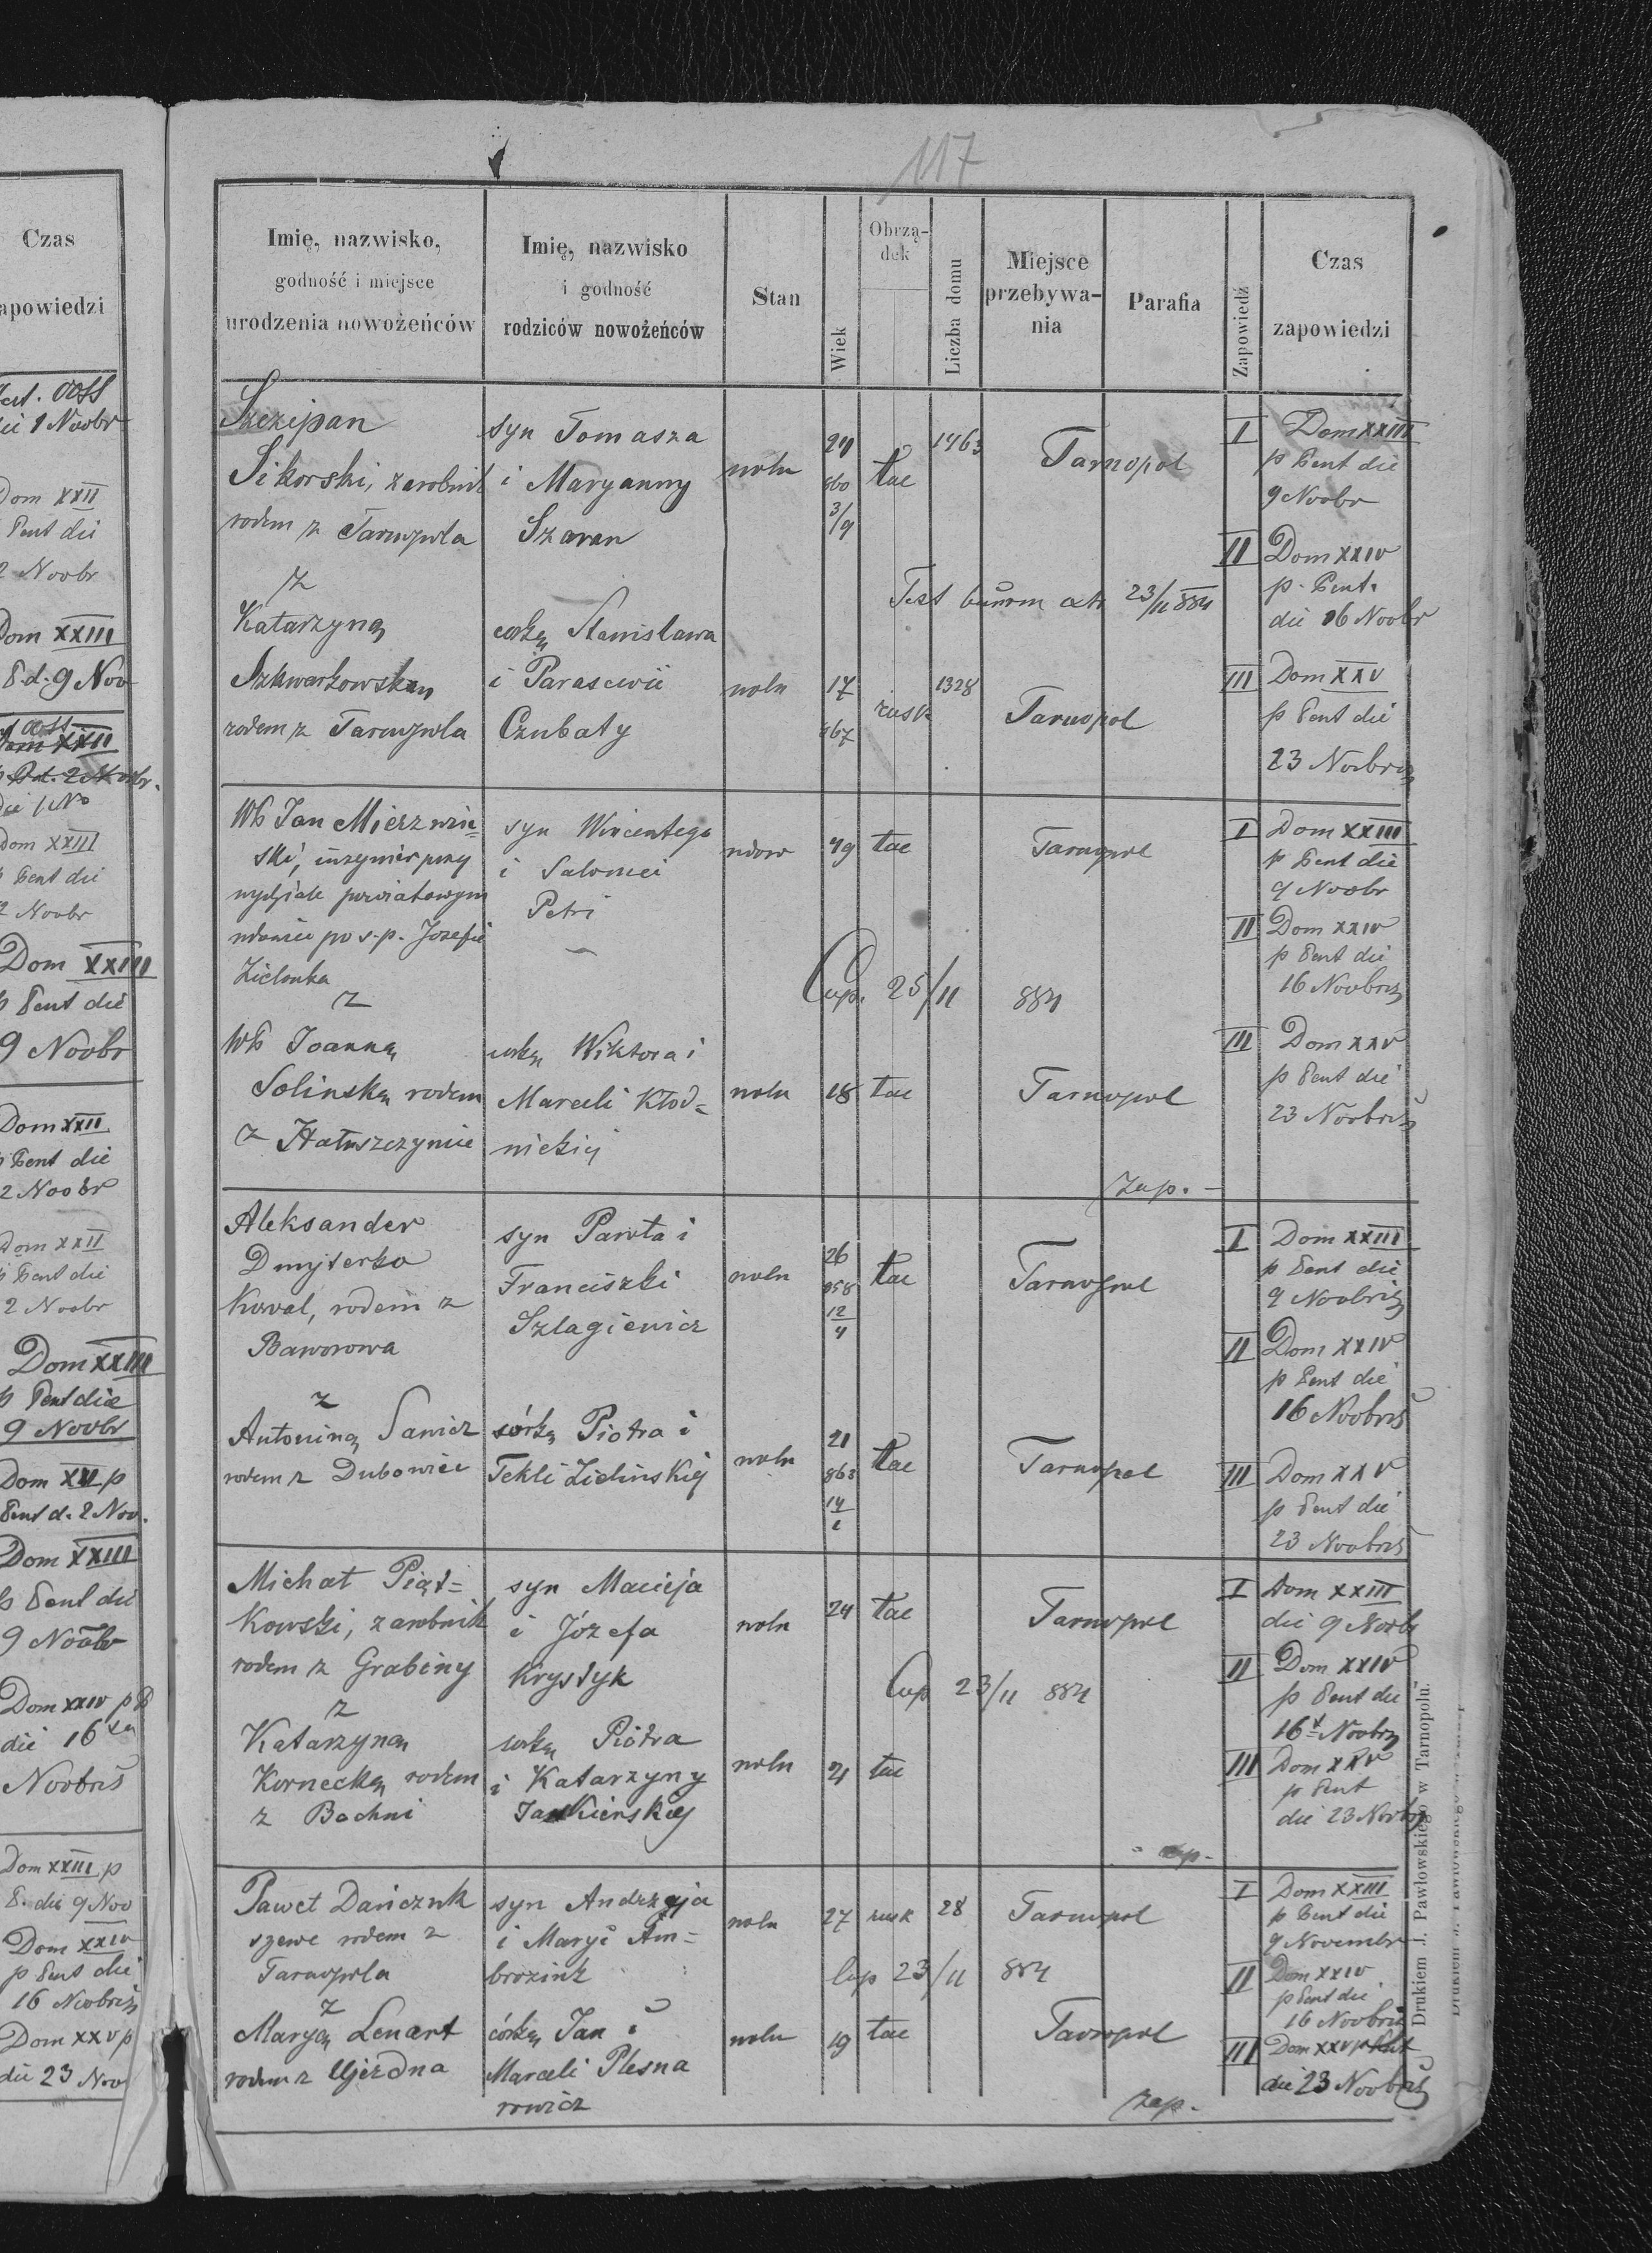 117
Czas
zapowiedzi
die 1 Noobr
Dom XXII
Pent die
2 Noobr
Dom XXIII
P. d. 9 Nov
Dom XXII
die 1 No
Dom XXIII
p Pent die
2 Noobr
Dom XXIII
p Pent die
9 Noobr
Dom XXII
p Pent die
2 Noobr
Dom XXII
p Pent die
2 Noobr
Dom XXIII
p Pent die
9 Noobr
Pent d. 2 Nov.
Dom XXIII
p Pent die
9 Noobr
Dom XXIV p P
die 16
Noobris
Dom XXIII p
P. die 9 Nov
Dom XXIV
p Pent die
16 Noobris
Dom XXV p
die 23 Nov
Imię, nazwisko,
godność i miejsce
urodzenia nowożeńców
Imię, nazwisko
i godność
rodziców nowożeńców
Stan
Wiek
Obrzą-
dek
Liczba domu
Miejsce
przebywa-
nia
Parafia
Zapowiedź
Czas
zapowiedzi
Szczepan
Sikorski, zarobnik
rodem z Tarnopola
z
Katarzyną
Szkwarkowską
rodem z Tarnopola
syn Tomasza
i Maryanny
Szaran
córką Stanisława
i Parascewii
Czubaty
woln
24
860
3/9
łac
1463
Tarnopol
Test 23/11 884
woln
17
867
rusk
1328
Tarnopol
I Dom XXIII
p Pent die
9 Noobr
II Dom XXIV
p. Pent.
die 16 Noobr
III Dom XXV
p Pent die
23 Noobris
Wb Jan Mierzwiń-
ski, inżynier przy
wydziale powiatowym
wdowiec po s. p. Józefie
Zielonka
z
Wb Joanną
Solinską rodem
z Hałuszczyniec
syn Wincentego
i Salomei
Petri
córką Wiktora i
Marceli Kłod-
nickiej
wdow
49
łac
Tarnopol
Cop. 25/11 884
woln
18
łac
Tarnopol
Zap.
I Dom XXIII
p Pent die
9 Noobr
II Dom XXIV
p Pent die
16 Noobris
III Dom XXV
p Pent die
23 Noobris
Aleksander
Dmyterko
Kowal, rodem z
Baworowa
z
Antoniną Sanicz
rodem z Dubowiec
syn Pawła i
Franciszki
Szlagiewicz
córką Piotra i
Tekli Zielinskiej
woln
26
858
12/4
łac
Tarnopol
woln
21
863
łac
Tarnopol
I Dom XXIII
p Pent die
9 Noobris
II Dom XXIV
p Pent die
16 Noobris
III Dom XXV
p Pent die
23 Noobris
Michał Piąt-
kowski, zarobnik
rodem z Grabiny
z
Katarzyną
Kornecką rodem
z Bochni
syn Macieja
i Józefa
Krystyk
córką Piotra
i Katarzyny
woln
24
łac
Tarnopol
Cop 23/11 884
woln
21
łac
I Dom XXIII
die 9 Noobr
II Dom XXIV
p Pent die
16 Noobris
III Dom XXV
p Pent
die 23 Noobris
Paweł Dańczuk
szewc rodem z
Tarnopola
z
Maryą Lenart
rodem z Ujezdna
syn Andrzeja
i Maryi Am-
brozink
córką Jan i
Marceli Plesna
rowicz
woln
27
rusk
28
Tarnopol
Cop 23/11 884
woln
19
łac
Tarnopol
Zap.
I Dom XXIII
p Pent die
9 Novembr
II Dom XXIV
p Pent die
16 Noobris
III Dom XXV p Pent
die 23 Noobris
Drukiem J. Pawłowskiego w Tarnopolu.